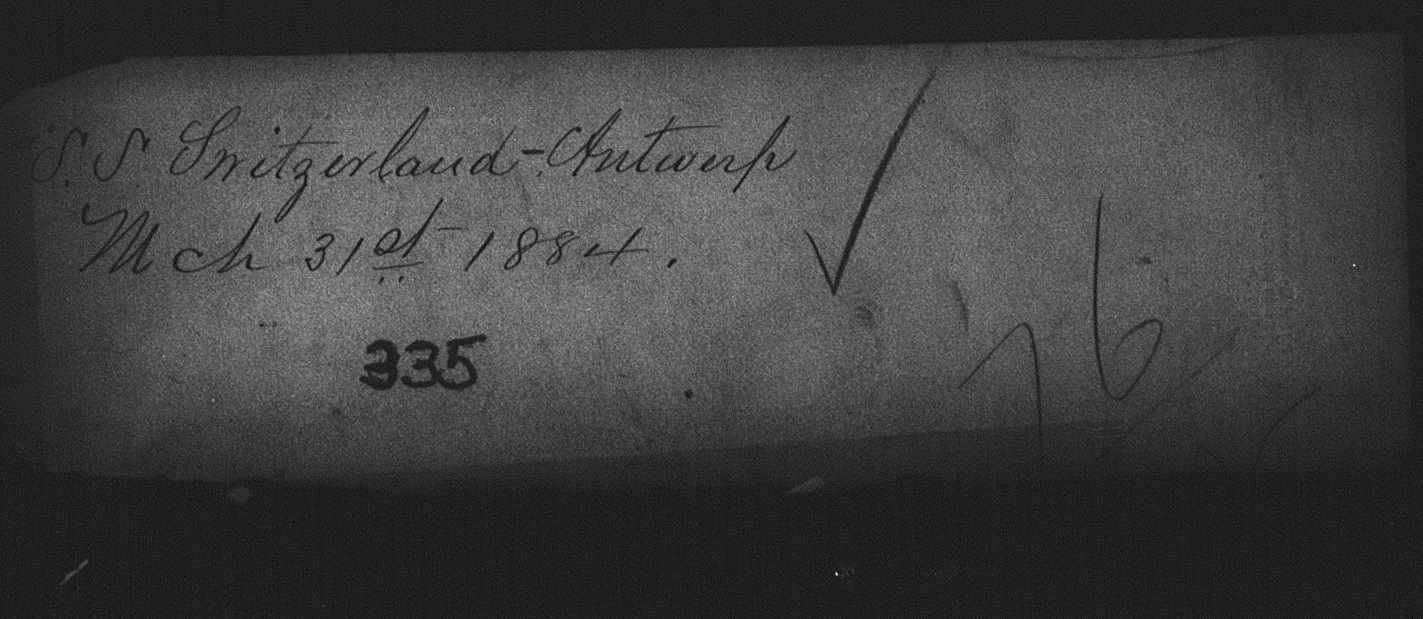 S. S. Switzerland - Antwerp
Mch 31st 1884.
335